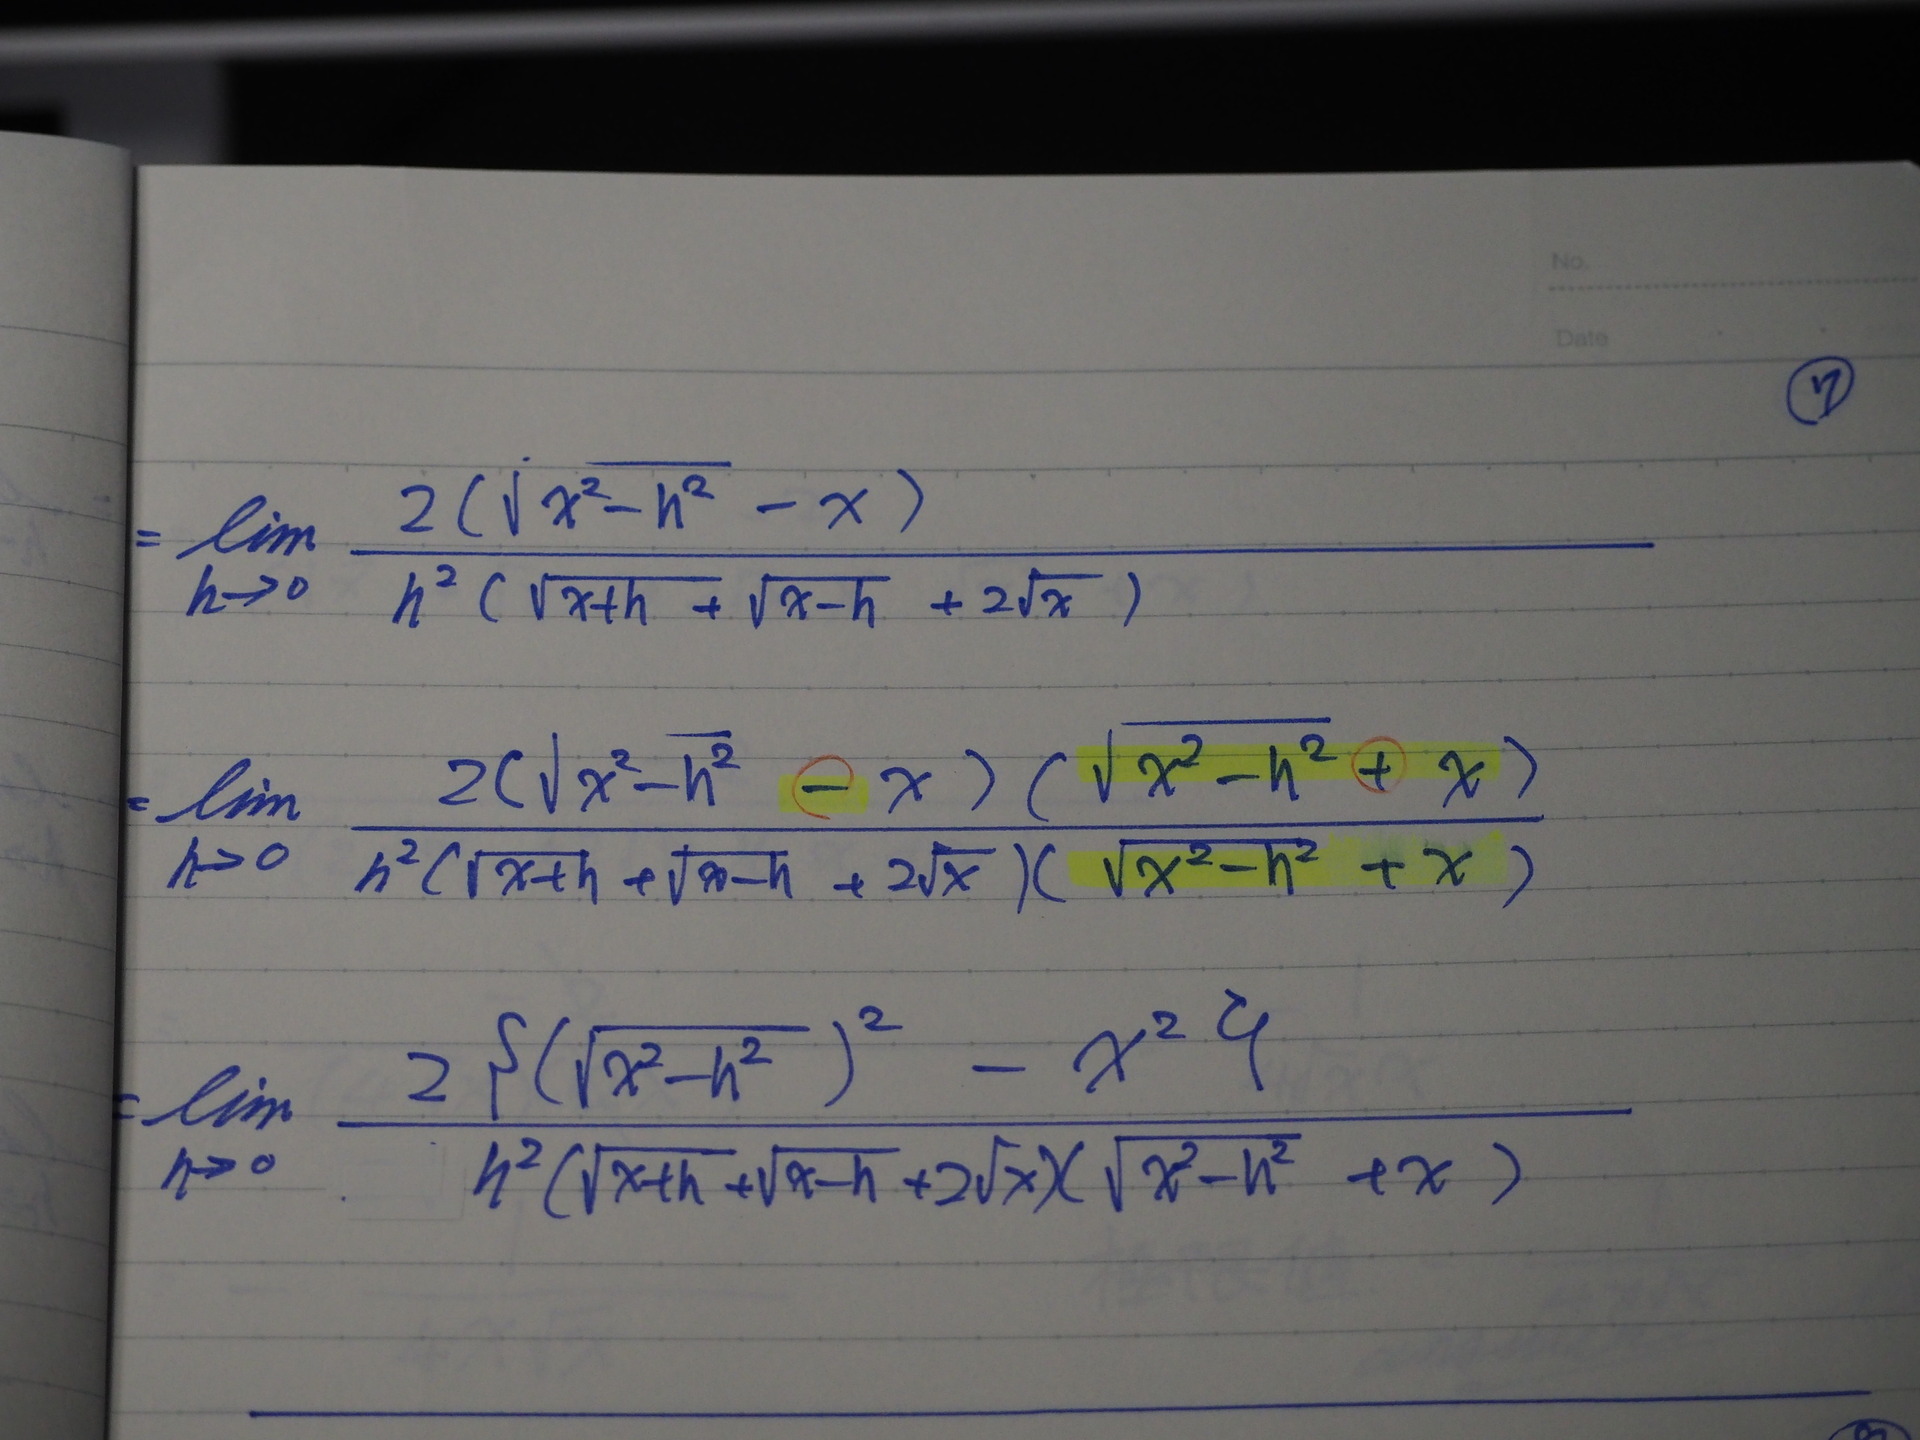 No.
Date
⑦
= lim h→0 2(√x²-h² - x) / h²(√x+h + √x-h + 2√x)
= lim h→0 2(√x²-h² - x)(√x²-h² + x) / h²(√x+h + √x-h + 2√x)(√x²-h² + x)
= lim h→0 2{(√x²-h²)² - x²} / h²(√x+h + √x-h + 2√x)(√x²-h² + x)